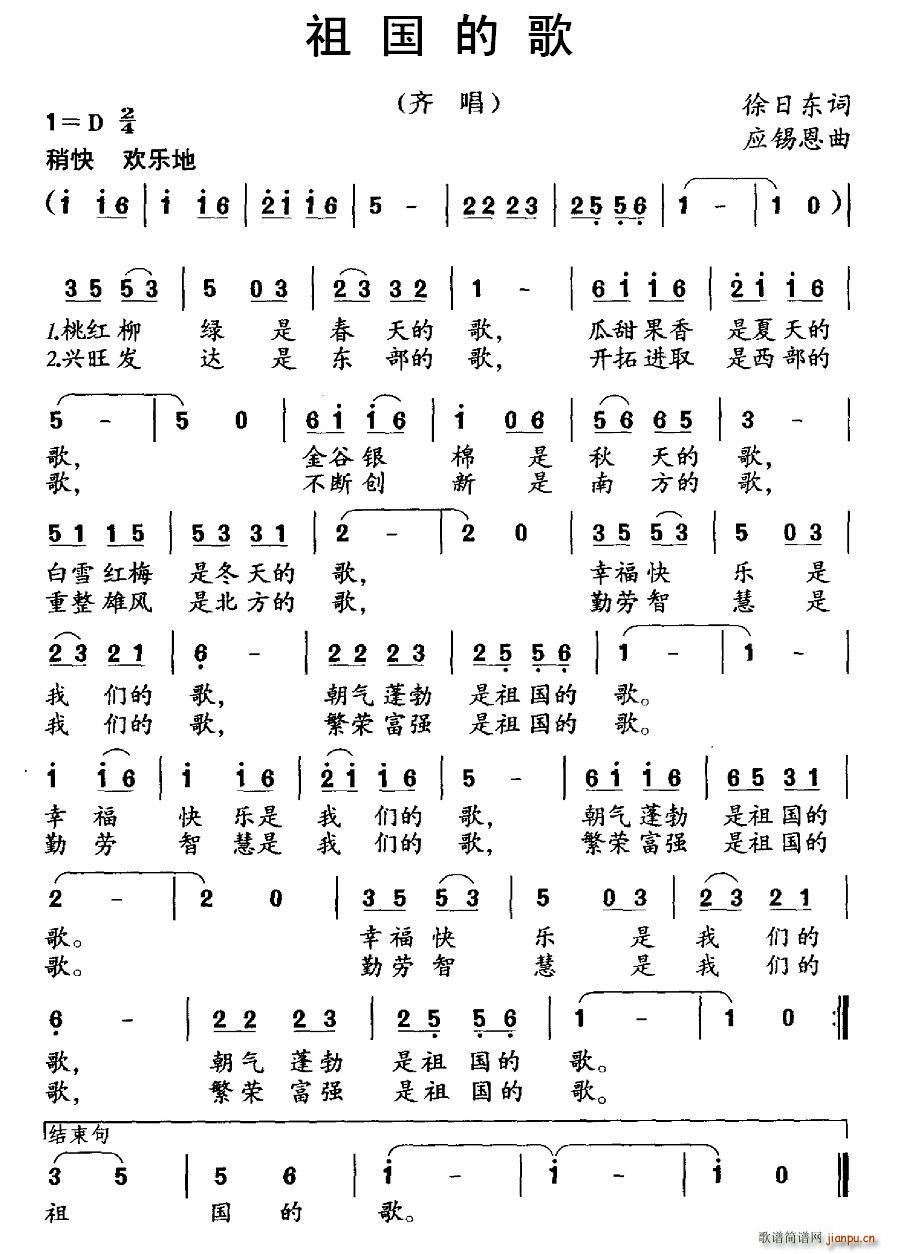 祖国的歌
(齐唱)
徐日东词
1=D 2/4
应锡恩曲
稍快 欢乐地
(i i6 | i i6 | 2i i6 | 5 - | 22 23 | 25 56 | 1 - | 1 0)|
35 53 | 5 03 | 23 32 | 1 - | 6i i6 | 2i i6 |
1.桃红柳 绿是春天的歌, 瓜甜果香是夏天的
2.兴旺发 达是东部的歌, 开拓进取是西部的
5 - | 5 0 | 6i i6 | i 06 | 56 65 | 3 - |
歌, 金谷银棉是秋天的歌,
歌, 不断创新是南方的歌,
51 15 | 53 31 | 2 - | 2 0 | 35 53 | 5 03 |
白雪红梅是冬天的歌, 幸福快乐是
重整雄风是北方的歌, 勤劳智慧是
23 21 | 6 - | 22 23 | 25 56 | 1 - | 1 - |
我们的歌, 朝气蓬勃是祖国的歌。
我们的歌, 繁荣富强是祖国的歌。
i i6 | i i6 | 2i i6 | 5 - | 6i i6 | 65 31 |
幸福快乐是我们的歌, 朝气蓬勃是祖国的
勤劳智慧是我们的歌, 繁荣富强是祖国的
2 - | 2 0 | 35 53 | 5 03 | 23 21 |
歌。 幸福快乐是我们的
歌。 勤劳智慧是我们的
6 - | 22 23 | 25 56 | 1 - | 1 0 :|
歌, 朝气蓬勃是祖国的歌。
歌, 繁荣富强是祖国的歌。
结束句
3 5 | 5 6 | i - | i - | i 0 ‖
祖国的歌。
歌谱简谱网 jianpu.cn